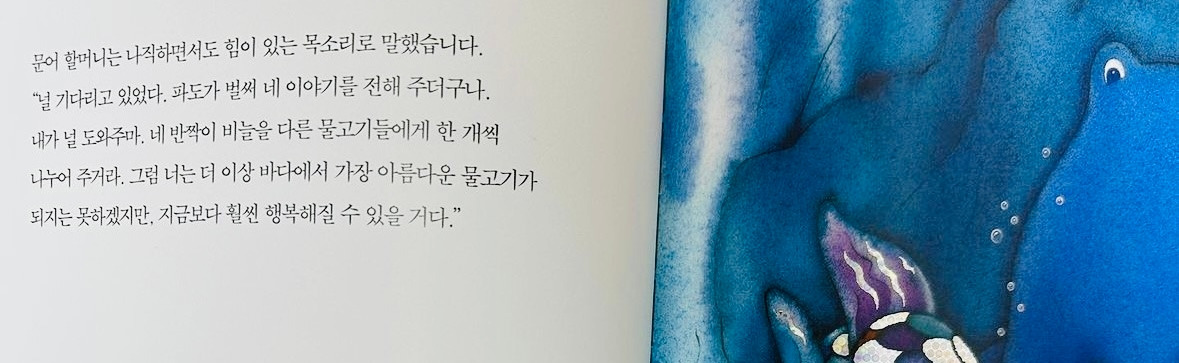 문어 할머니는 나직하면서도 힘이 있는 목소리로 말했습니다.
“널 기다리고 있었다. 파도가 벌써 네 이야기를 전해 주더구나.
내가 널 도와주마. 네 반짝이 비늘을 다른 물고기들에게 한 개씩
나누어 주거라. 그럼 너는 더 이상 바다에서 가장 아름다운 물고기가
되지는 못하겠지만, 지금보다 훨씬 행복해질 수 있을 거다.”